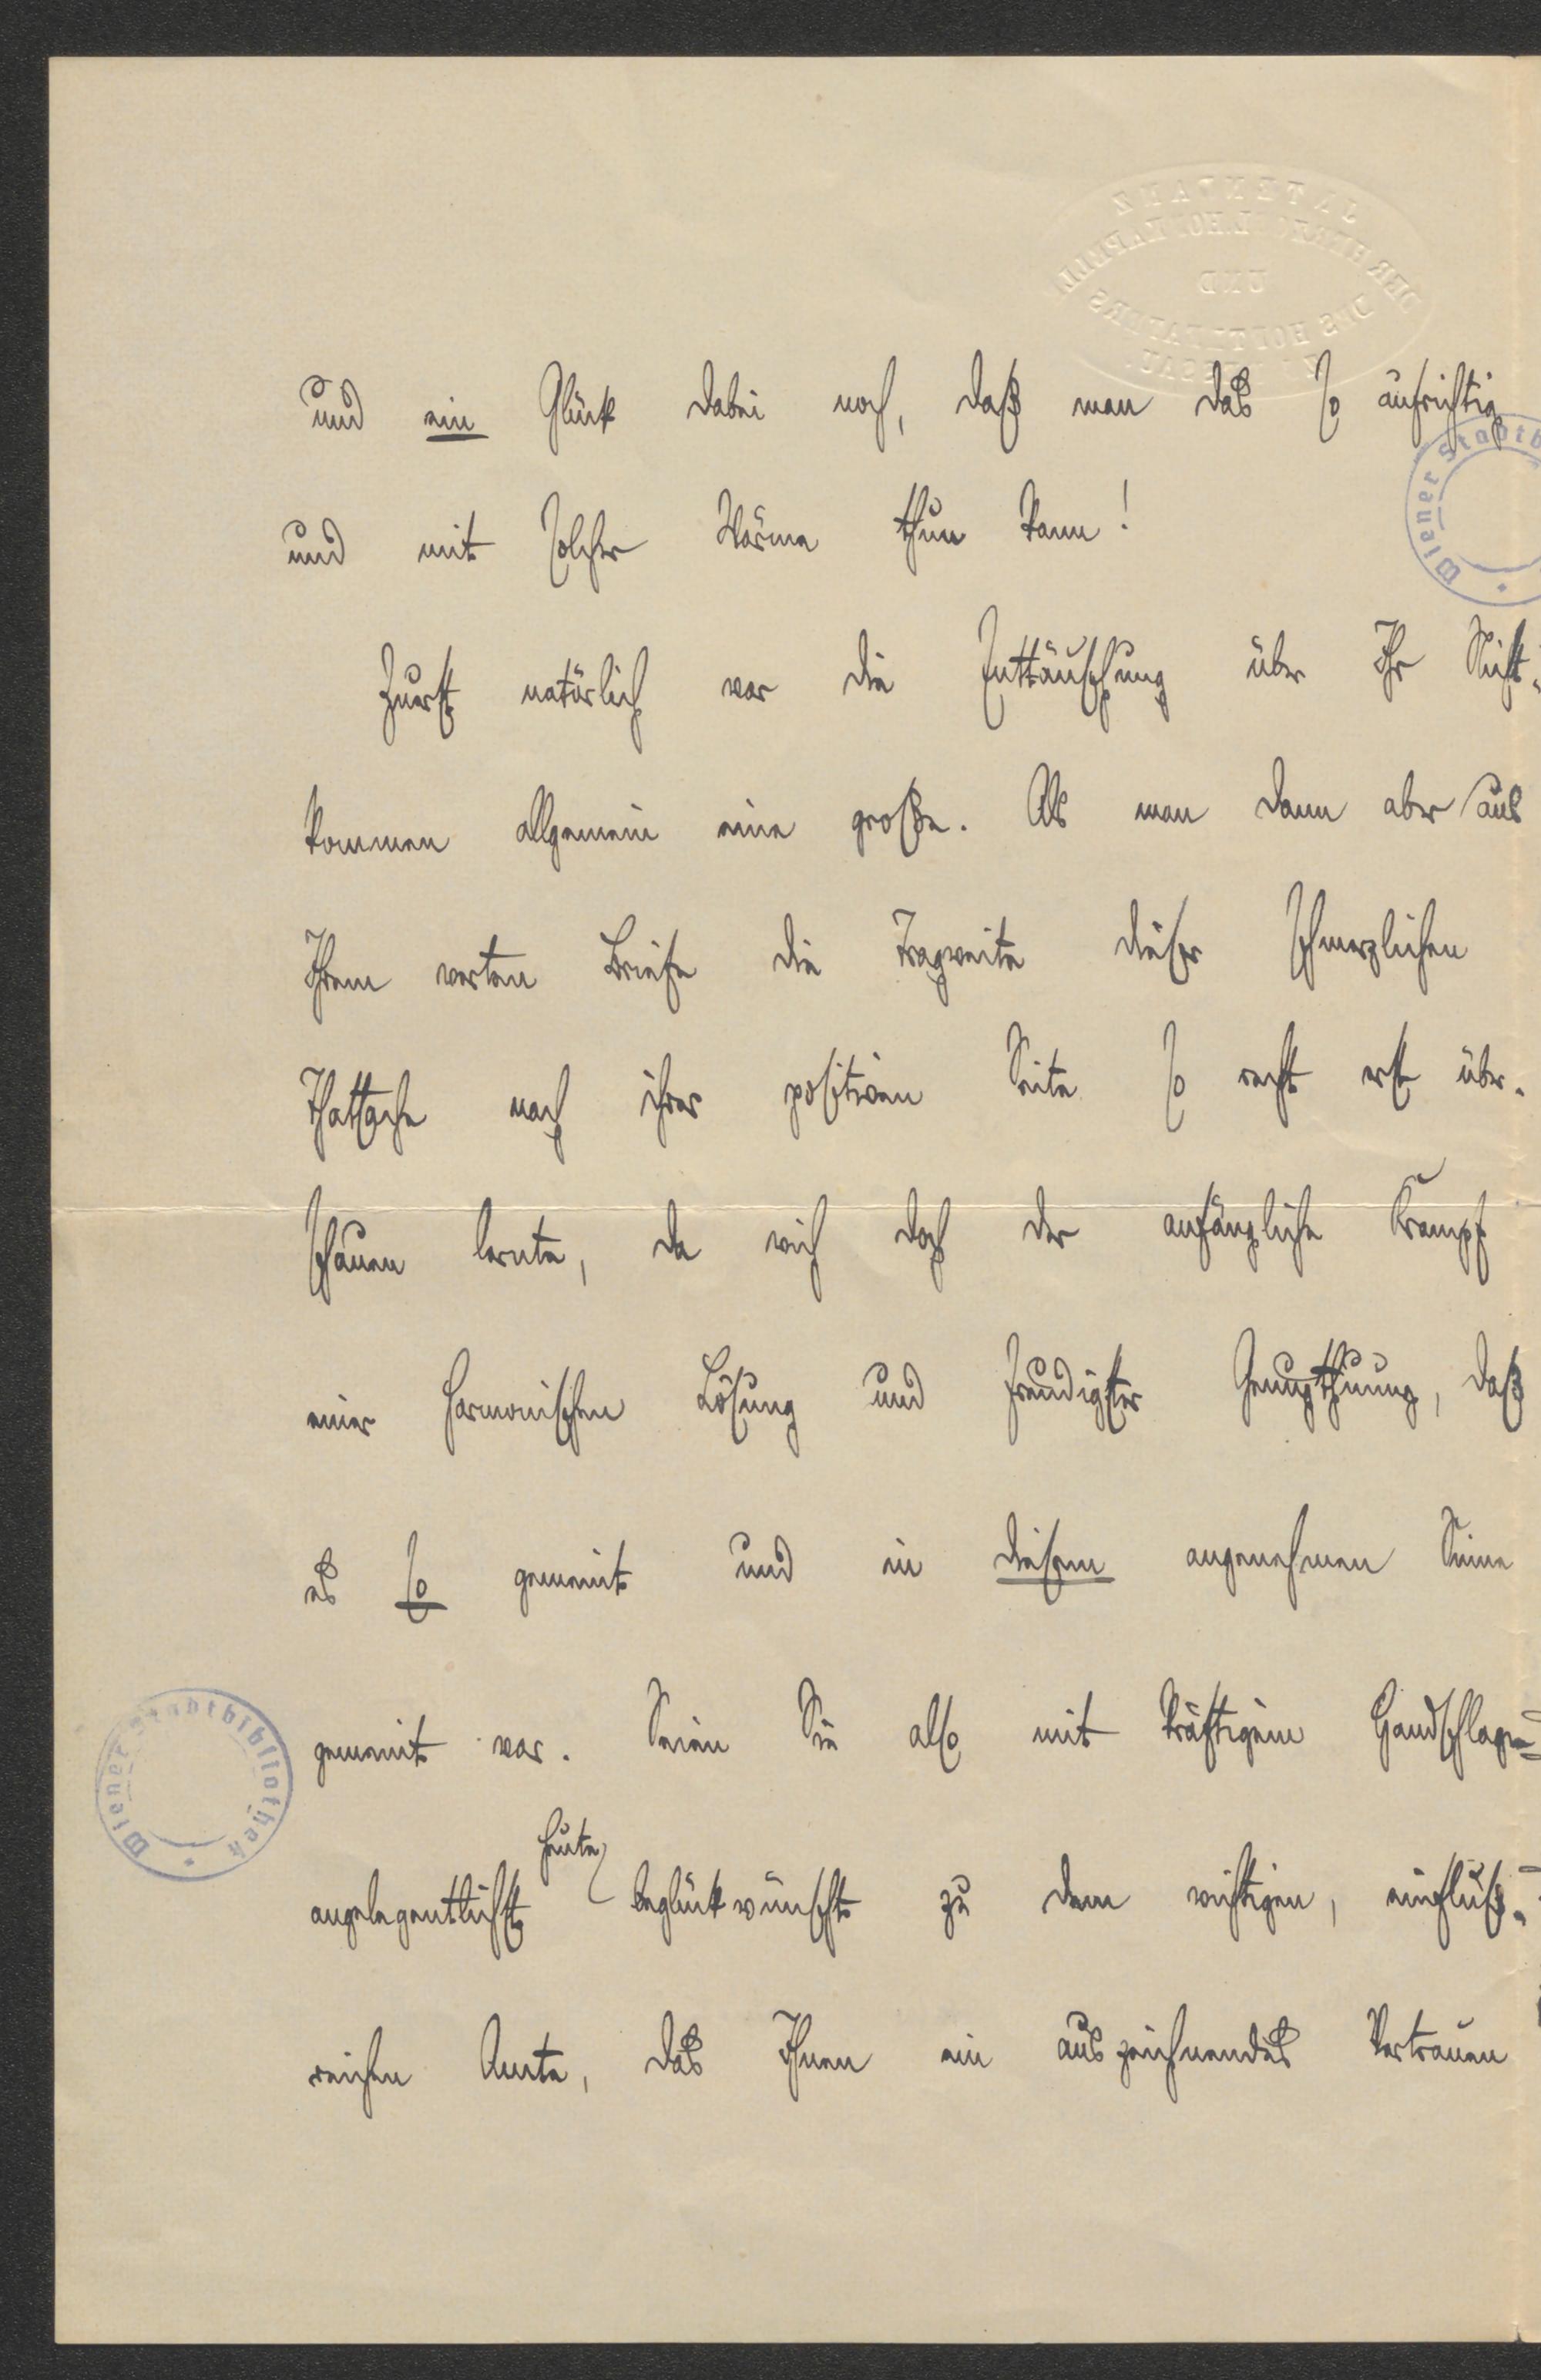 und ein Glück dabei noch, daß man das so aufrichtig
und mit solcher Wärme thun kann!
Zuerst natürlich war die Enttäuschung über Ihr Nicht-
kommen allgemein eine große. Als man dann aber aus
Ihrem werten Briefe die Tragweite dieser schmerzlichen
Thatsache nach ihrer positiven Seite so recht erst über-
schauen lernte, da wich doch der anfängliche Krampf
einer harmonischen Lösung und freudigster Genugthuung, daß
es so gemeint und in diesem angenehmen Sinne
gemeint war. Seien Sie also mit kräftigem Handschlage
heute
angelegentlichst beglückwünscht zu dem wichtigen, einfluß-
reichen Amte, das Ihnen ein auszeichnendes Vertrauen
Wiener Stadtb
Wiener Stadtbibliothek
UND